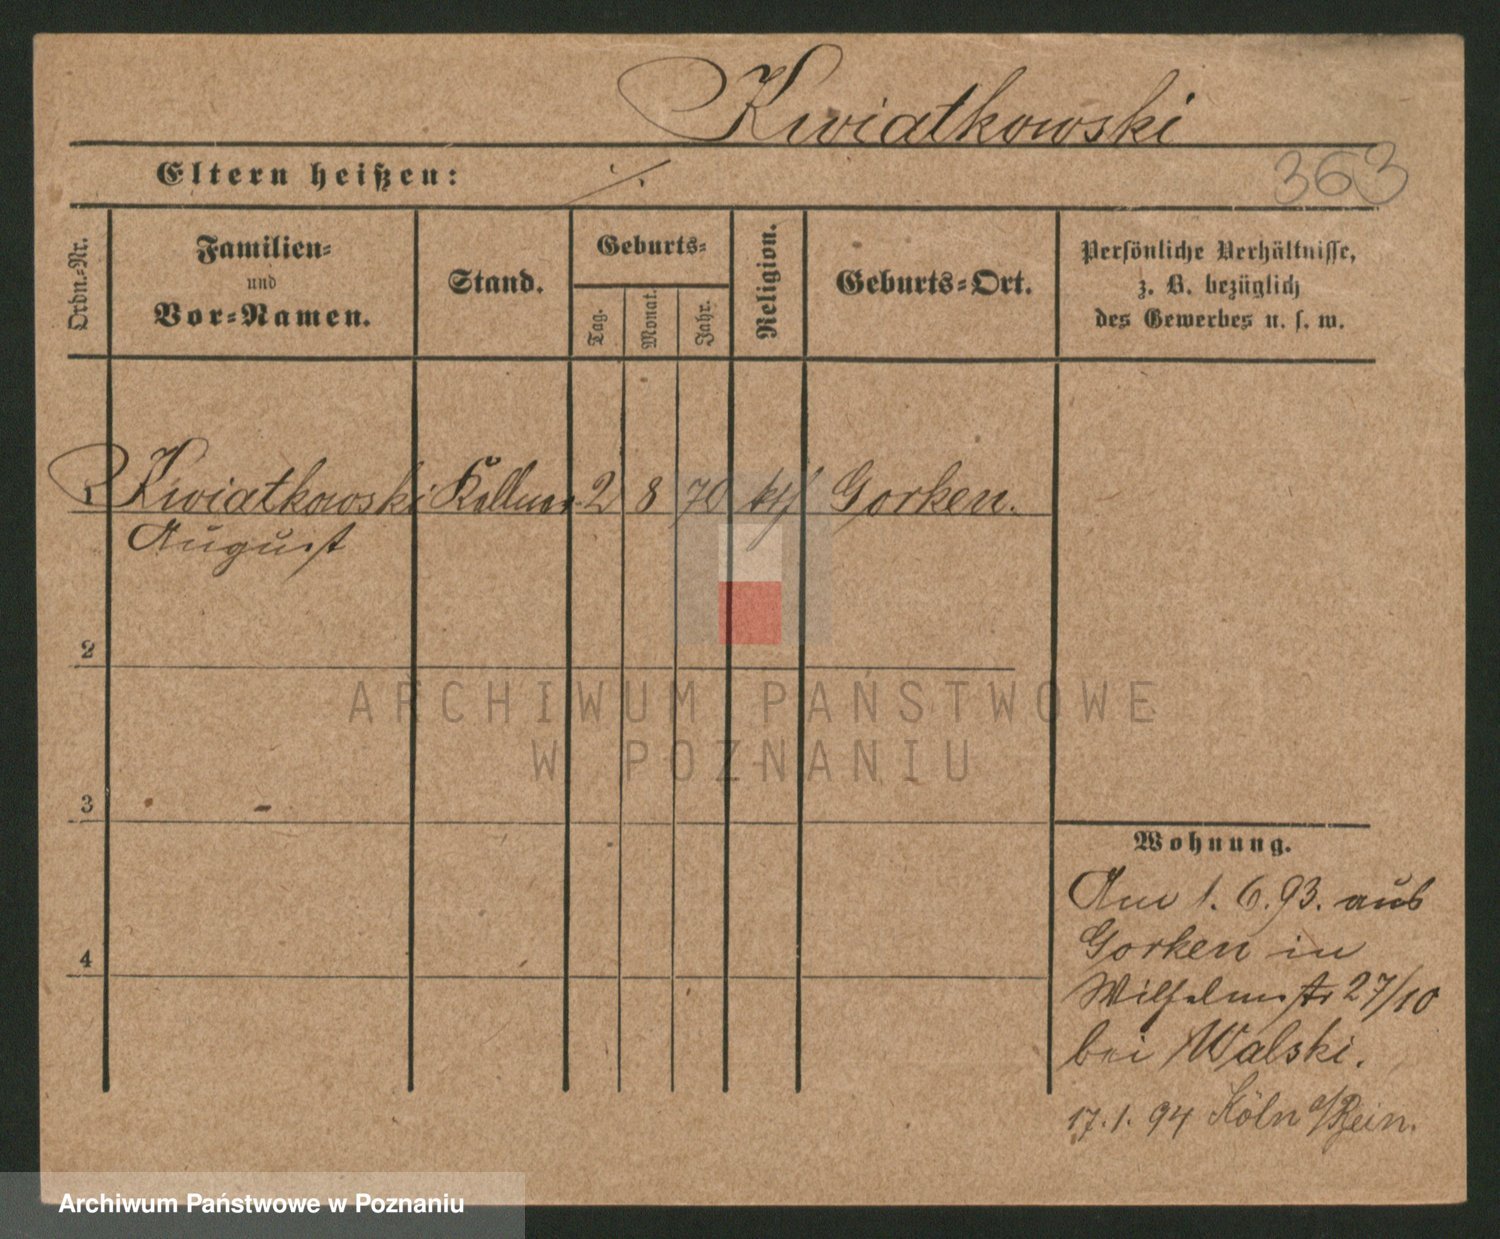 Kwiatkowski
Eltern heißen: ./.
363
Ordn.-Nr.
Familien-
und
Vor-Namen.
Stand.
Geburts-
Tag.
Monat.
Jahr.
Religion.
Geburts-Ort.
Persönliche Verhältnisse,
z. B. bezüglich
des Gewerbes u. s. w.
1 Kwiatkowski Kellner 2 8 70 kth Gorken.
August
2
ARCHIWUM PAŃSTWOWE
W POZNANIU
3
4
Wohnung.
Am 1. 6. 93. aus
Gorken in
Wilhelmstr 27/10
bei Walski.
17. 1. 94 Köln a/Rein.
Archiwum Państwowe w Poznaniu